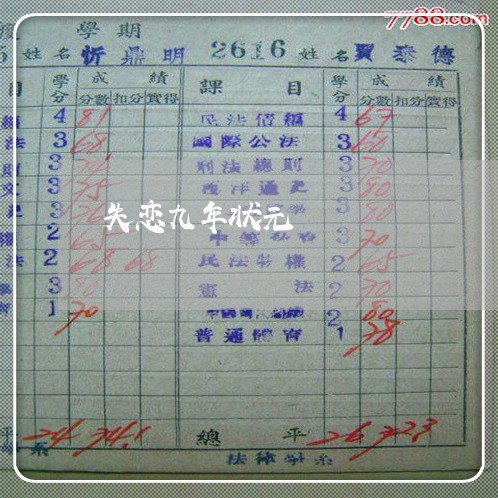 7788.com
學期
5 姓名 忻鼎明 2616 姓名 賈泰德
目 學分 成績 課目 學分 成績
分數 扣分 實得 分數 扣分 實得
4 81 民法債編 4 67
法 3 68 國際公法 3 60
3 刑法總則 3 70
3 75 西洋通史 3 80
3 3 80
失恋九年状元
2 3 70
法 2 68 68 民法物權 2 65
3 80 憲法 2 70
1 70 2 80
普通體育 1 78
平 24 74.1 總平 26 72.3
系 法律學系